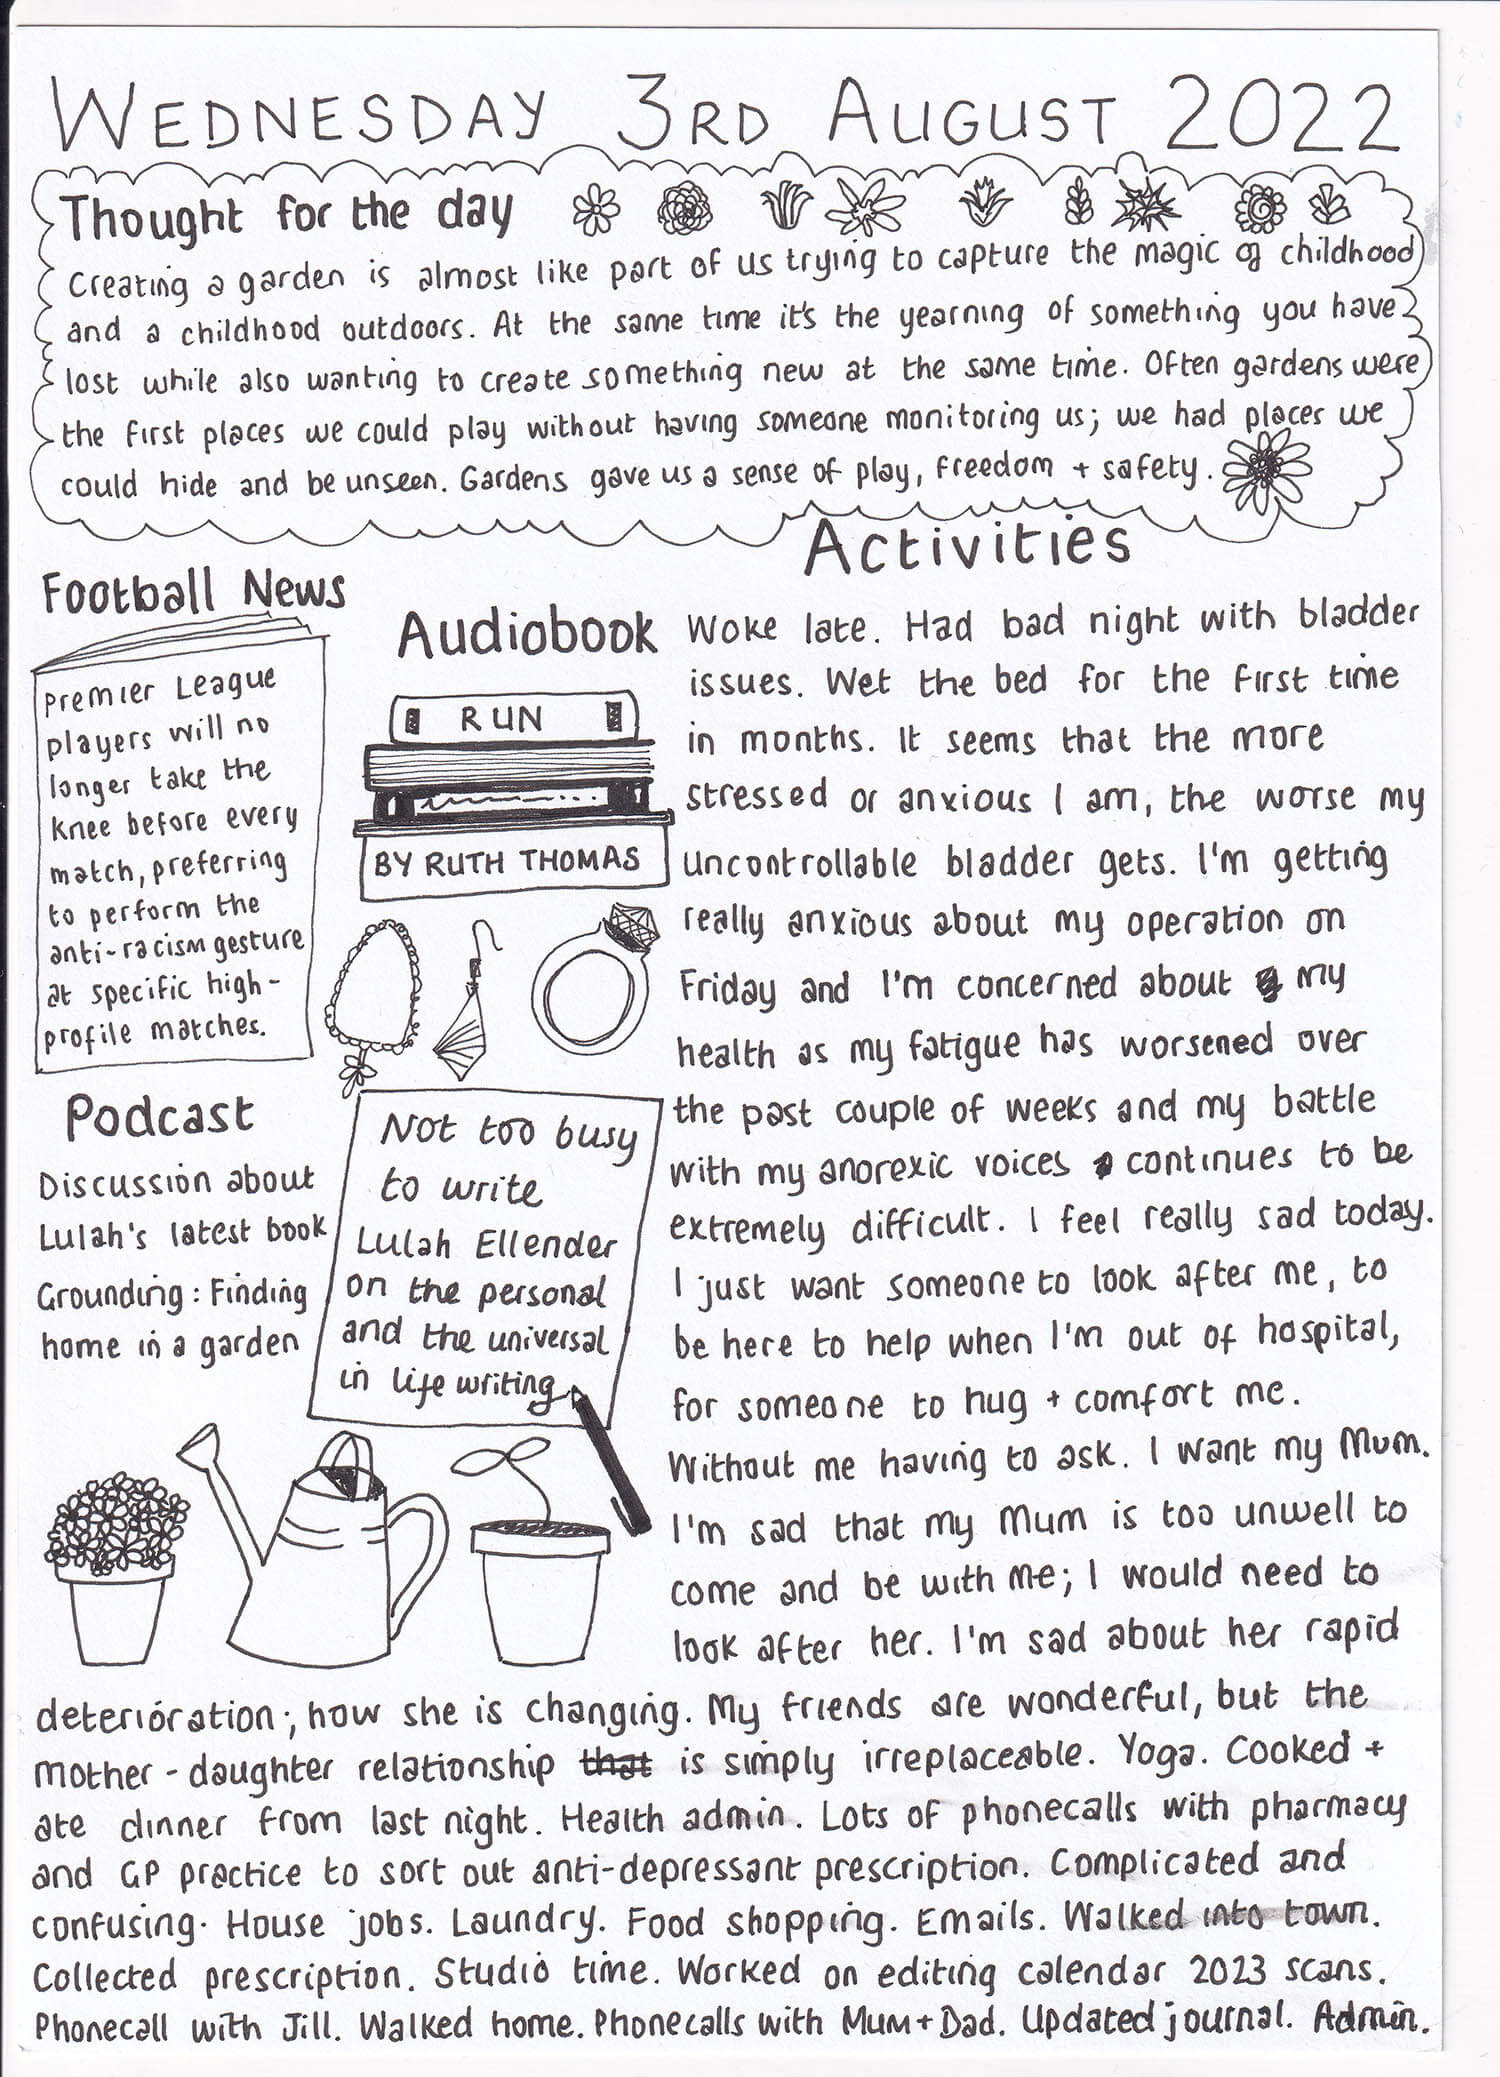 WEDNESDAY 3RD AUGUST 2022
Thought for the day
Creating a garden is almost like part of us trying to capture the magic of childhood
and a childhood outdoors. At the same time it's the yearning of something you have
lost while also wanting to create something new at the same time. Often gardens were
the first places we could play without having someone monitoring us; we had places we
could hide and be unseen. Gardens gave us a sense of play, freedom + safety.
Football News
Premier League
players will no
longer take the
knee before every
match, preferring
to perform the
anti-racism gesture
at specific high-
profile matches.
Audiobook
RUN
BY RUTH THOMAS
Podcast
Discussion about
Lulah's latest book
Grounding: Finding
home in a garden
Not too busy
to write
Lulah Ellender
on the personal
and the universal
in life writing
Activities
Woke late. Had bad night with bladder
issues. Wet the bed for the first time
in months. It seems that the more
stressed or anxious I am, the worse my
uncontrollable bladder gets. I'm getting
really anxious about my operation on
Friday and I'm concerned about my
health as my fatigue has worsened over
the past couple of weeks and my battle
with my anorexic voices continues to be
extremely difficult. I feel really sad today.
I just want someone to look after me, to
be here to help when I'm out of hospital,
for someone to hug + comfort me.
Without me having to ask. I want my Mum.
I'm sad that my Mum is too unwell to
come and be with me; I would need to
look after her. I'm sad about her rapid
deterioration; how she is changing. My friends are wonderful, but the
mother-daughter relationship that is simply irreplaceable. Yoga. Cooked +
ate dinner from last night. Health admin. Lots of phonecalls with pharmacy
and GP practice to sort out anti-depressant prescription. Complicated and
confusing. House jobs. Laundry. Food shopping. Emails. Walked into town.
Collected prescription. Studio time. Worked on editing calendar 2023 scans.
Phonecall with Jill. Walked home. Phonecalls with Mum + Dad. Updated journal. Admin.